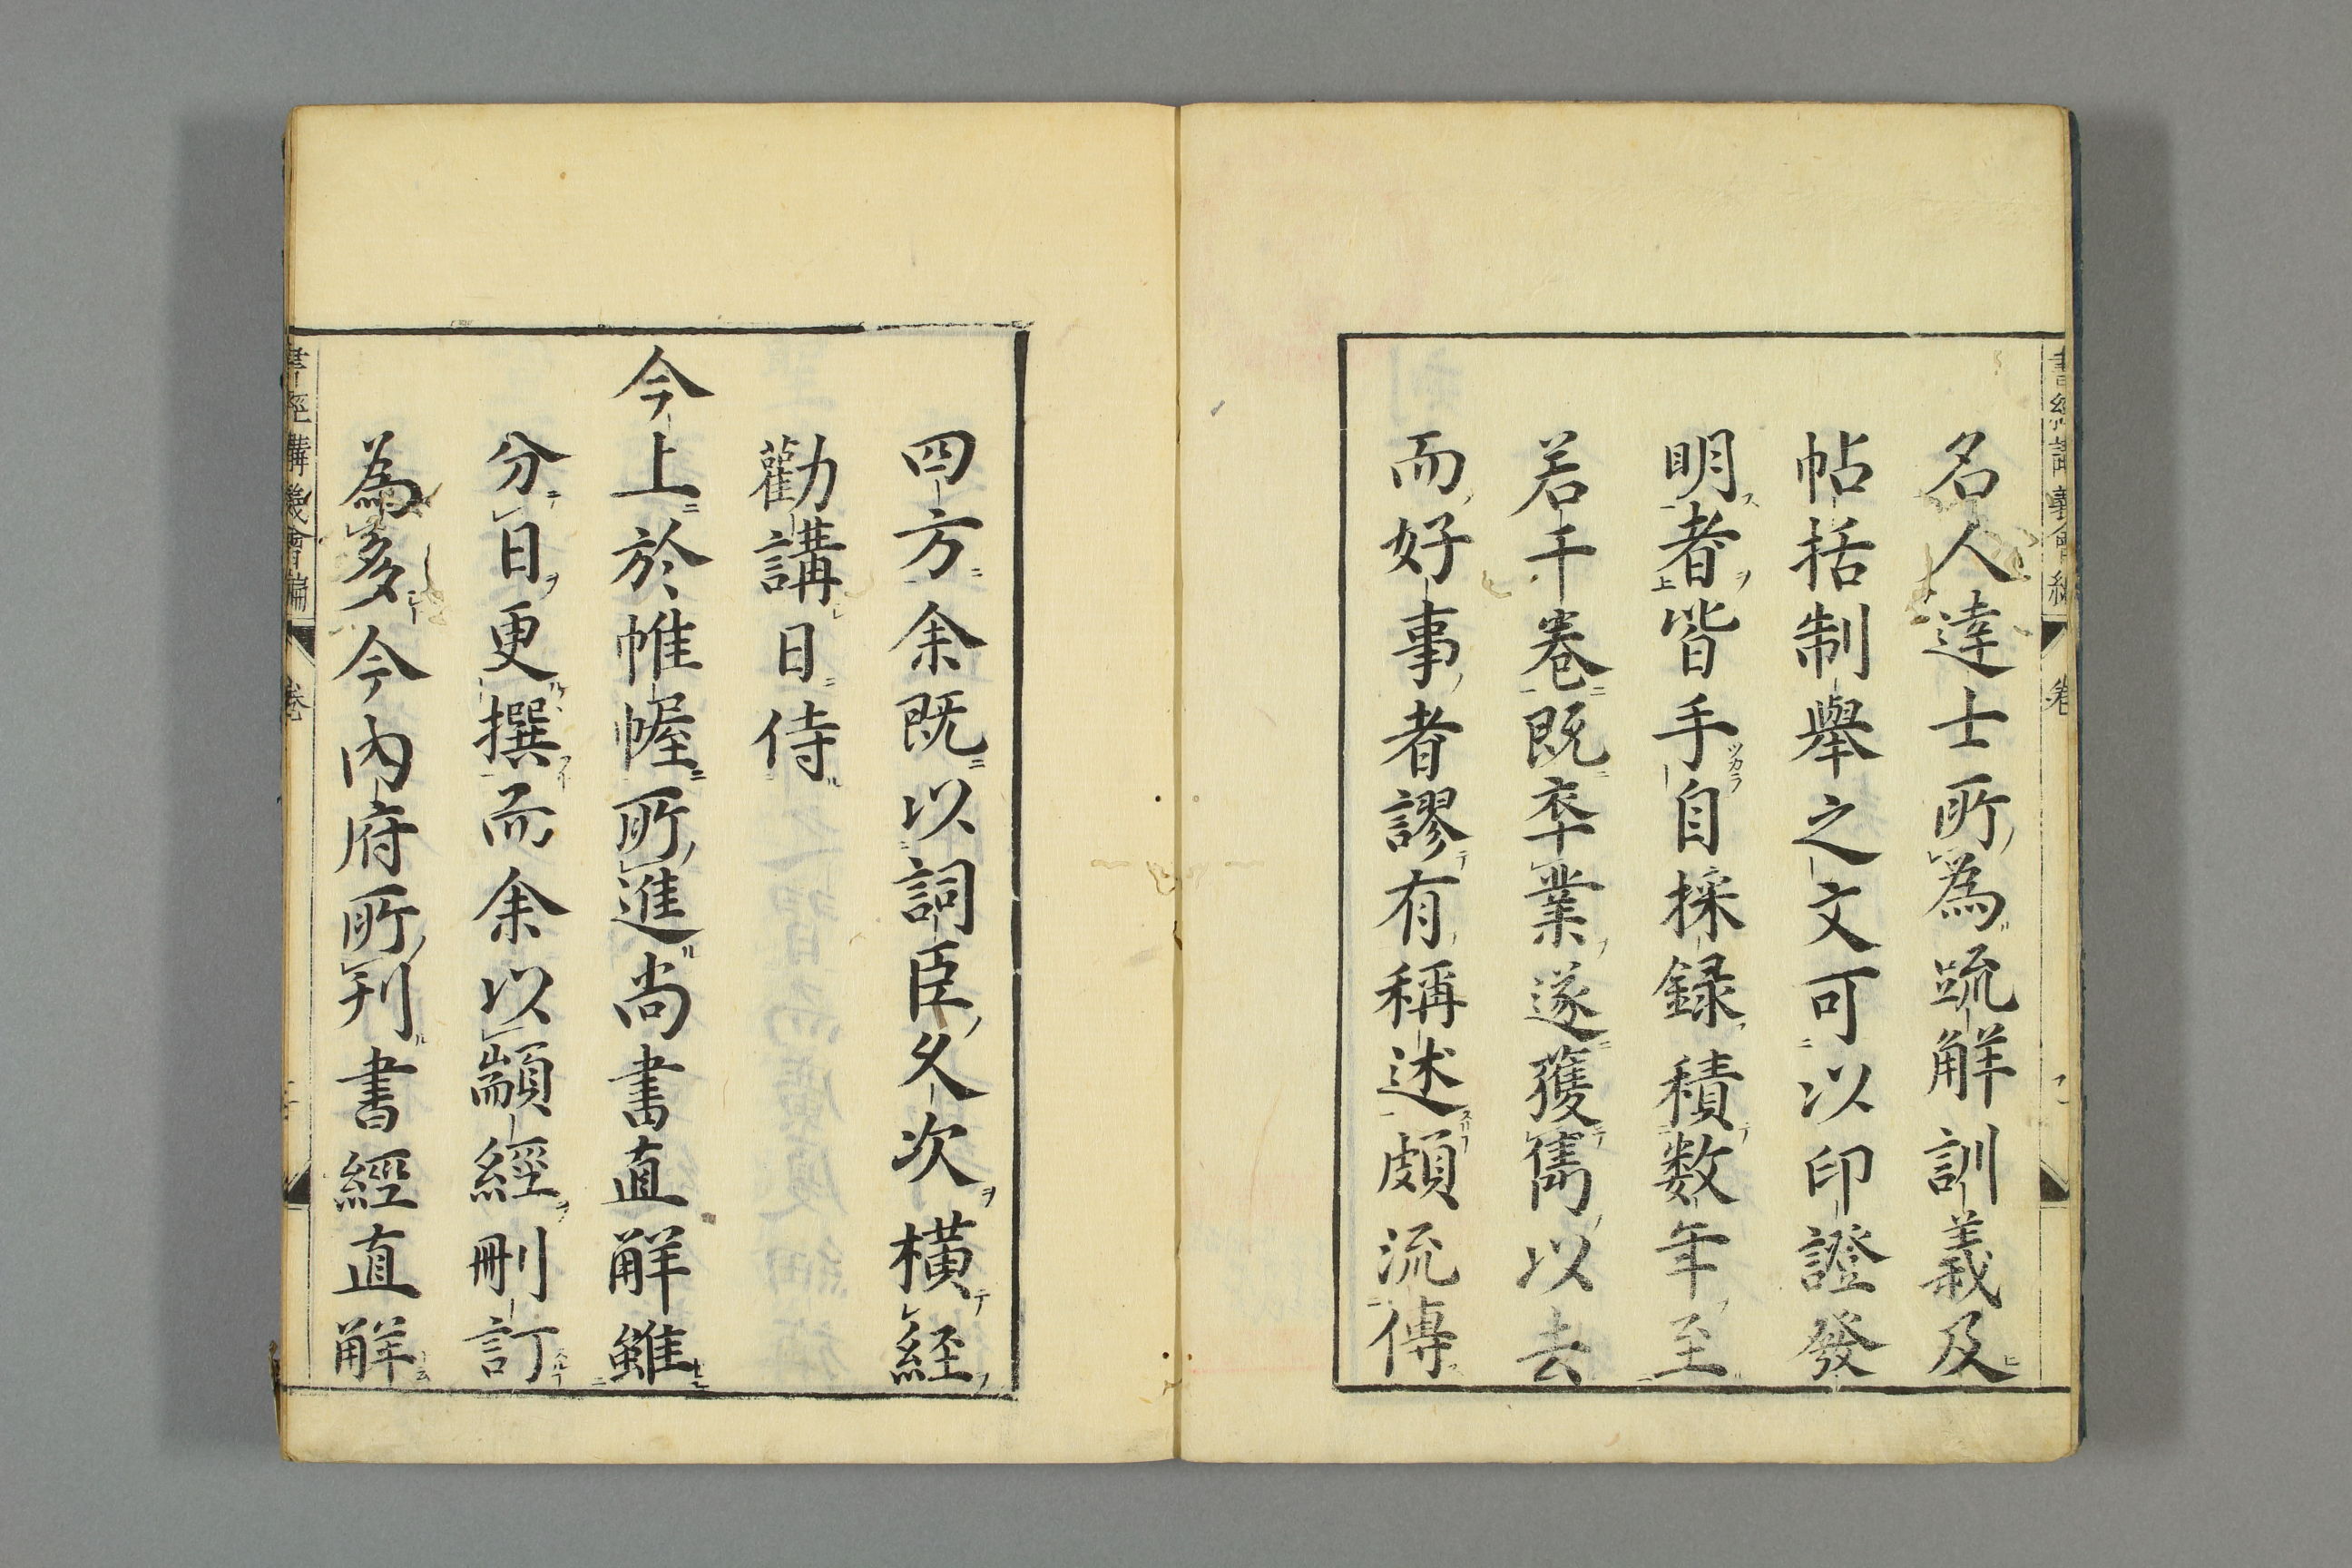 名人達士所為疏解訓義及
帖括制舉之文可以印證發
明者皆手自採録積数年至
若干卷既卒業遂獲雋以去
而好事者謬有稱述頗流傳
四方余既以詞臣久次橫経
勸講日侍
今上於帷幄所進尚書直解雖
分日更撰而余以顓經刪訂
為多今內府所刋書經直解